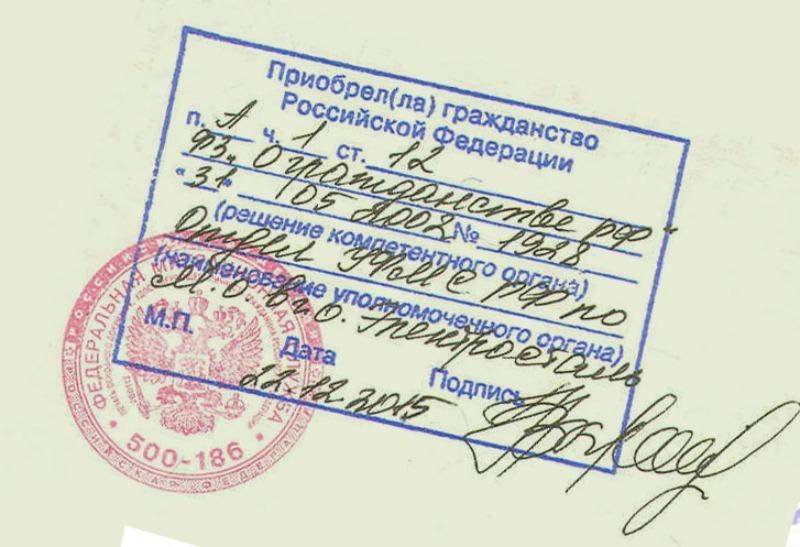 Приобрел(ла) гражданство
Российской Федерации
п. А ч. 1 ст. 12
ФЗ „О гражданстве РФ“
"31" 05 2002 № 1928
(решение компетентного органа)
Отдел УФМС РФ по
(наименование уполномоченного органа)
М.О в г.о. Электросталь
М.П.
Дата Подпись
22.12.2015
ФЕДЕРАЛЬНАЯ МИГРАЦИОННАЯ СЛУЖБА
500-186